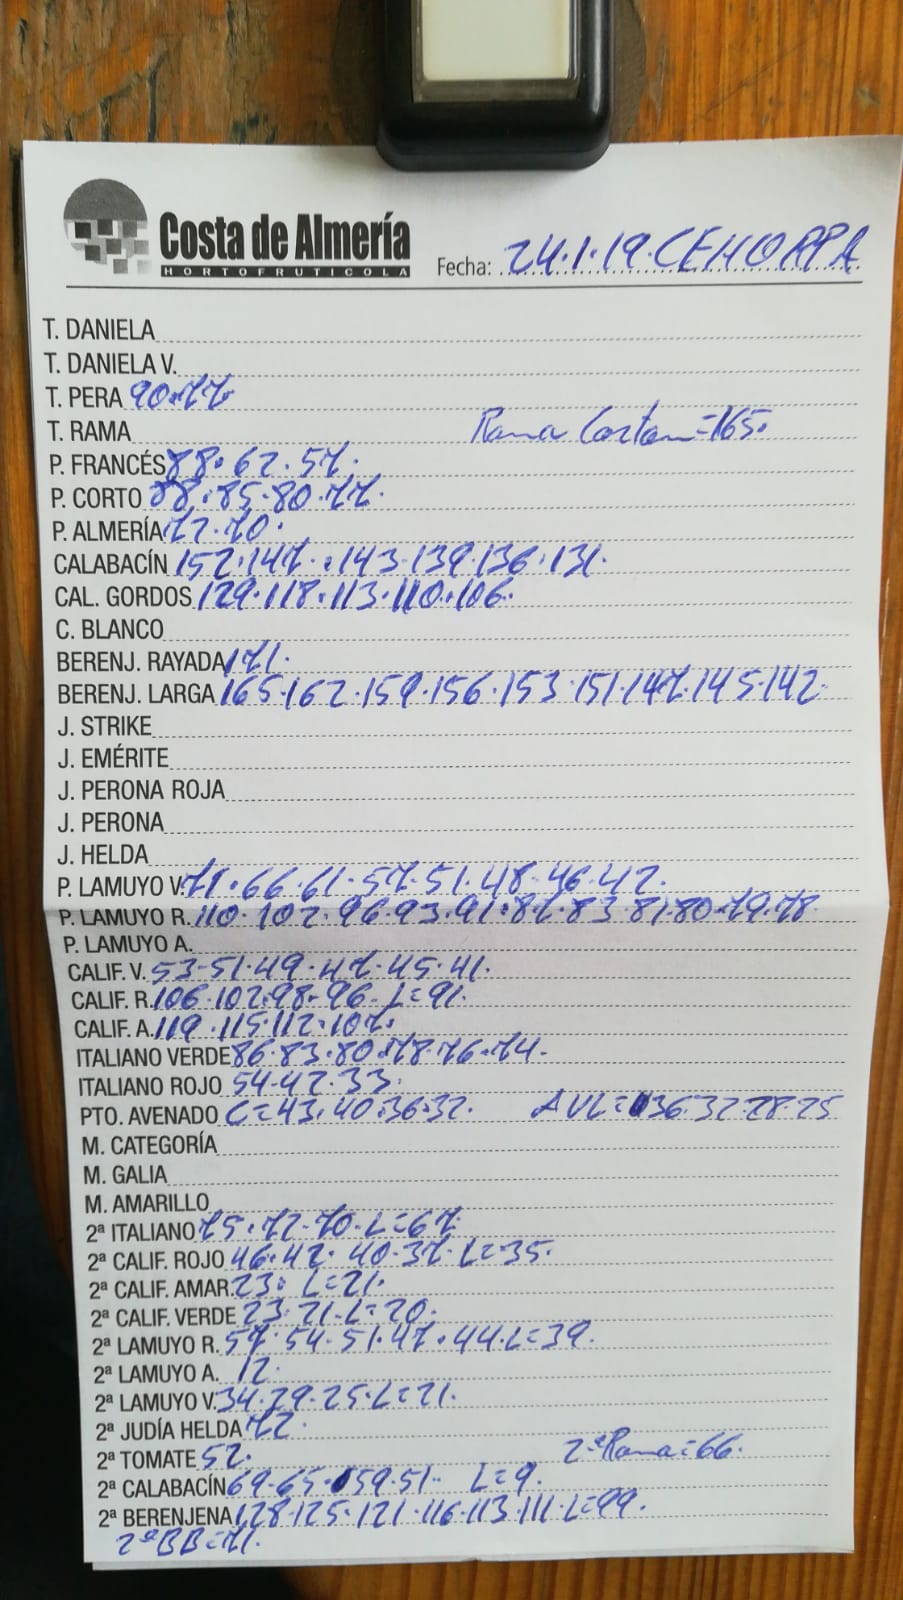 Costa de Almería
HORTOFRUTICOLA
Fecha: 24.1.19.CEHORPA
T. DANIELA
T. DANIELA V.
T. PERA 90.77
T. RAMA Rama =165.
P. FRANCÉS 88.62.57.
P. CORTO 88.85.80.77.
P. ALMERÍA 72.70.
CALABACÍN 152.147.143.139.136.131.
CAL. GORDOS 129.118.113.110.106.
C. BLANCO
BERENJ. RAYADA 171.
BERENJ. LARGA 165.162.159.156.153.151.147.145.142.
J. STRIKE
J. EMÉRITE
J. PERONA ROJA
J. PERONA
J. HELDA
P. LAMUYO V. 71.66.61.57.51.48.46.42.
P. LAMUYO R. 110.102.96.93.91.87.83.81.80.79.78.
P. LAMUYO A.
CALIF. V. 53.51.49.47.45.41.
CALIF. R. 106.102.98.96.L=91.
CALIF. A. 119.115.112.107.
ITALIANO VERDE 86.83.80.78.76.74.
ITALIANO ROJO 54.42.33.
PTO. AVENADO C=43.40.36.32. AVL=36.32.28.25
M. CATEGORÍA
M. GALIA
M. AMARILLO
2ª ITALIANO 75.72.70.L=67.
2ª CALIF. ROJO 46.42.40.37.L=35.
2ª CALIF. AMAR. 23. L=21.
2ª CALIF. VERDE 23.21.L=20.
2ª LAMUYO R. 57.54.51.47.44.L=39.
2ª LAMUYO A. 12.
2ª LAMUYO V. 34.29.25.L=21.
2ª JUDÍA HELDA 72.
2ª TOMATE 52. 2ªRama=66.
2ª CALABACÍN 69.65.59.51. L=9.
2ª BERENJENA 128.125.121.116.113.111.L=99.
2ªBB=71.